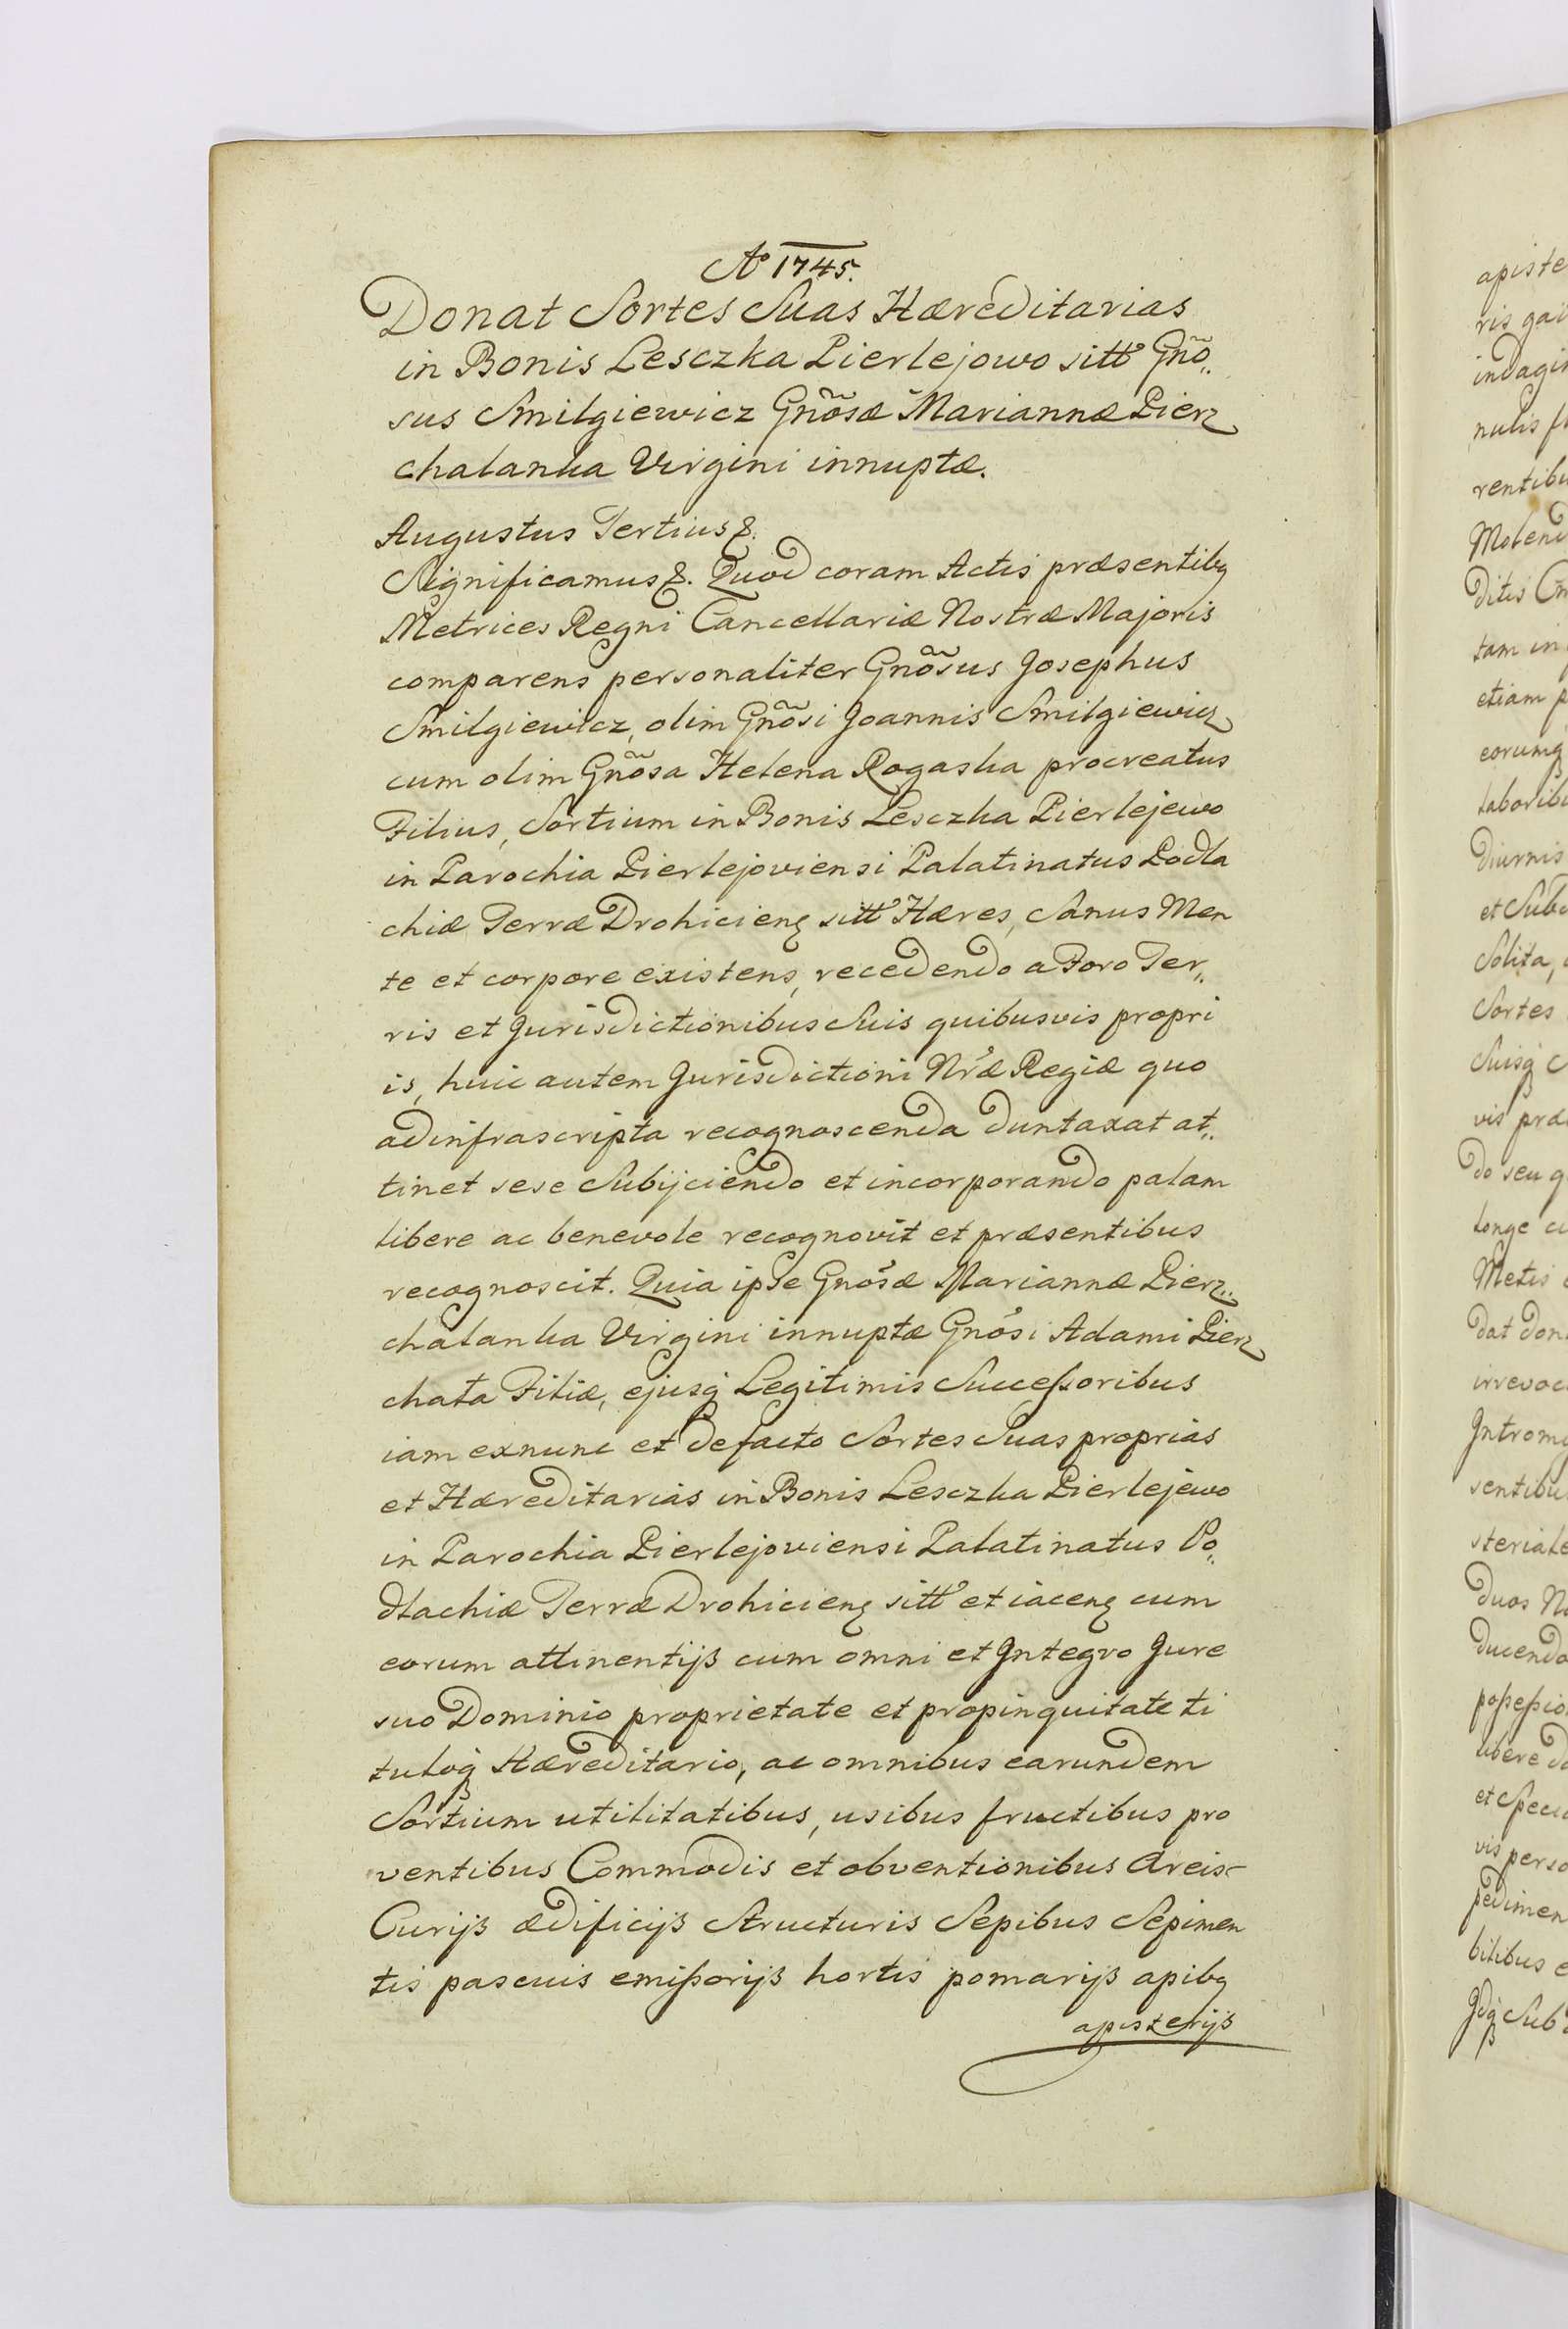 Aº 1745.
Donat Sortes Suas Hæreditarias
in Bonis Lesczka Pierlejowo sitt Gñõ„
sus Smilgiewicz Gñõsæ Mariannæ Pierz
chalanka Virgini innuptæ.
Augustus Tertius &.
Significamus &. Quod coram Actis præsentibq
Metrices Regni Cancellariæ Nostræ Majoris
comparens personaliter Gñõsus Josephus
Smilgiewicz, olim Gñõsi Joannis Smilgiewicz
cum olim Gñõsa Helena Rogaska procreatus
Filius, Sortium in Bonis Lesczka Pierlejewo
in Parochia Pierlejoviensi Palatinatus Podla
chiæ Terræ Drohicienς sitt Hæres, Sanus Men
te et corpore existens, recedendo a Foro Ter„
ris et Jurisdictionibus Suis quibusvis propri
is, huic autem Jurisdictioni Nræ Regiæ quo
ad infrascripta recognoscenda duntaxat at„
tinet sese Subijciendo et incorporando palam
libere ac benevole recognovit et præsentibus
recognoscit. Quia ipse Gnosæ Mariannæ Pierz„
chalanka Virgini innuptæ Gnosi Adami Pierz
chała Filiæ, ejusq Legitimis Successoribus
iam exnunc et defacto Sortes Suas proprias
et Hæreditarias in Bonis Lesczka Pierlejewo
in Parochia Pierlejoviensi Palatinatus Po„
dlachiæ Terræ Drohicienς sitt et iacenς cum
eorum attinentijs cum omni et Integro Jure
suo Dominio proprietate et propinquitate ti
tuloq Hæreditario, ac omnibus earundem
Sortium utilitatibus, usibus fructibus pro
ventibus Commodis et obventionibus Areis
Curijs ædificijs Structuris Sepibus Sepimen
tis pascuis emissorijs hortis pomarijs apibq
apisterijs
apiste
ris gai
indagin
nulis
rentibu
Molend
ditis
tam in
etiam p
eorumq
laboribu
diurnis
et Sub
Solita,
Sortes
Suisq
vis præ
do seu q
longe
Metis
dat don
irrevoc
Introm
sentibu
steriale
duos
ducendo
possessio
libere
et Speci
vis perso
pedimen
bilibus e
Sub